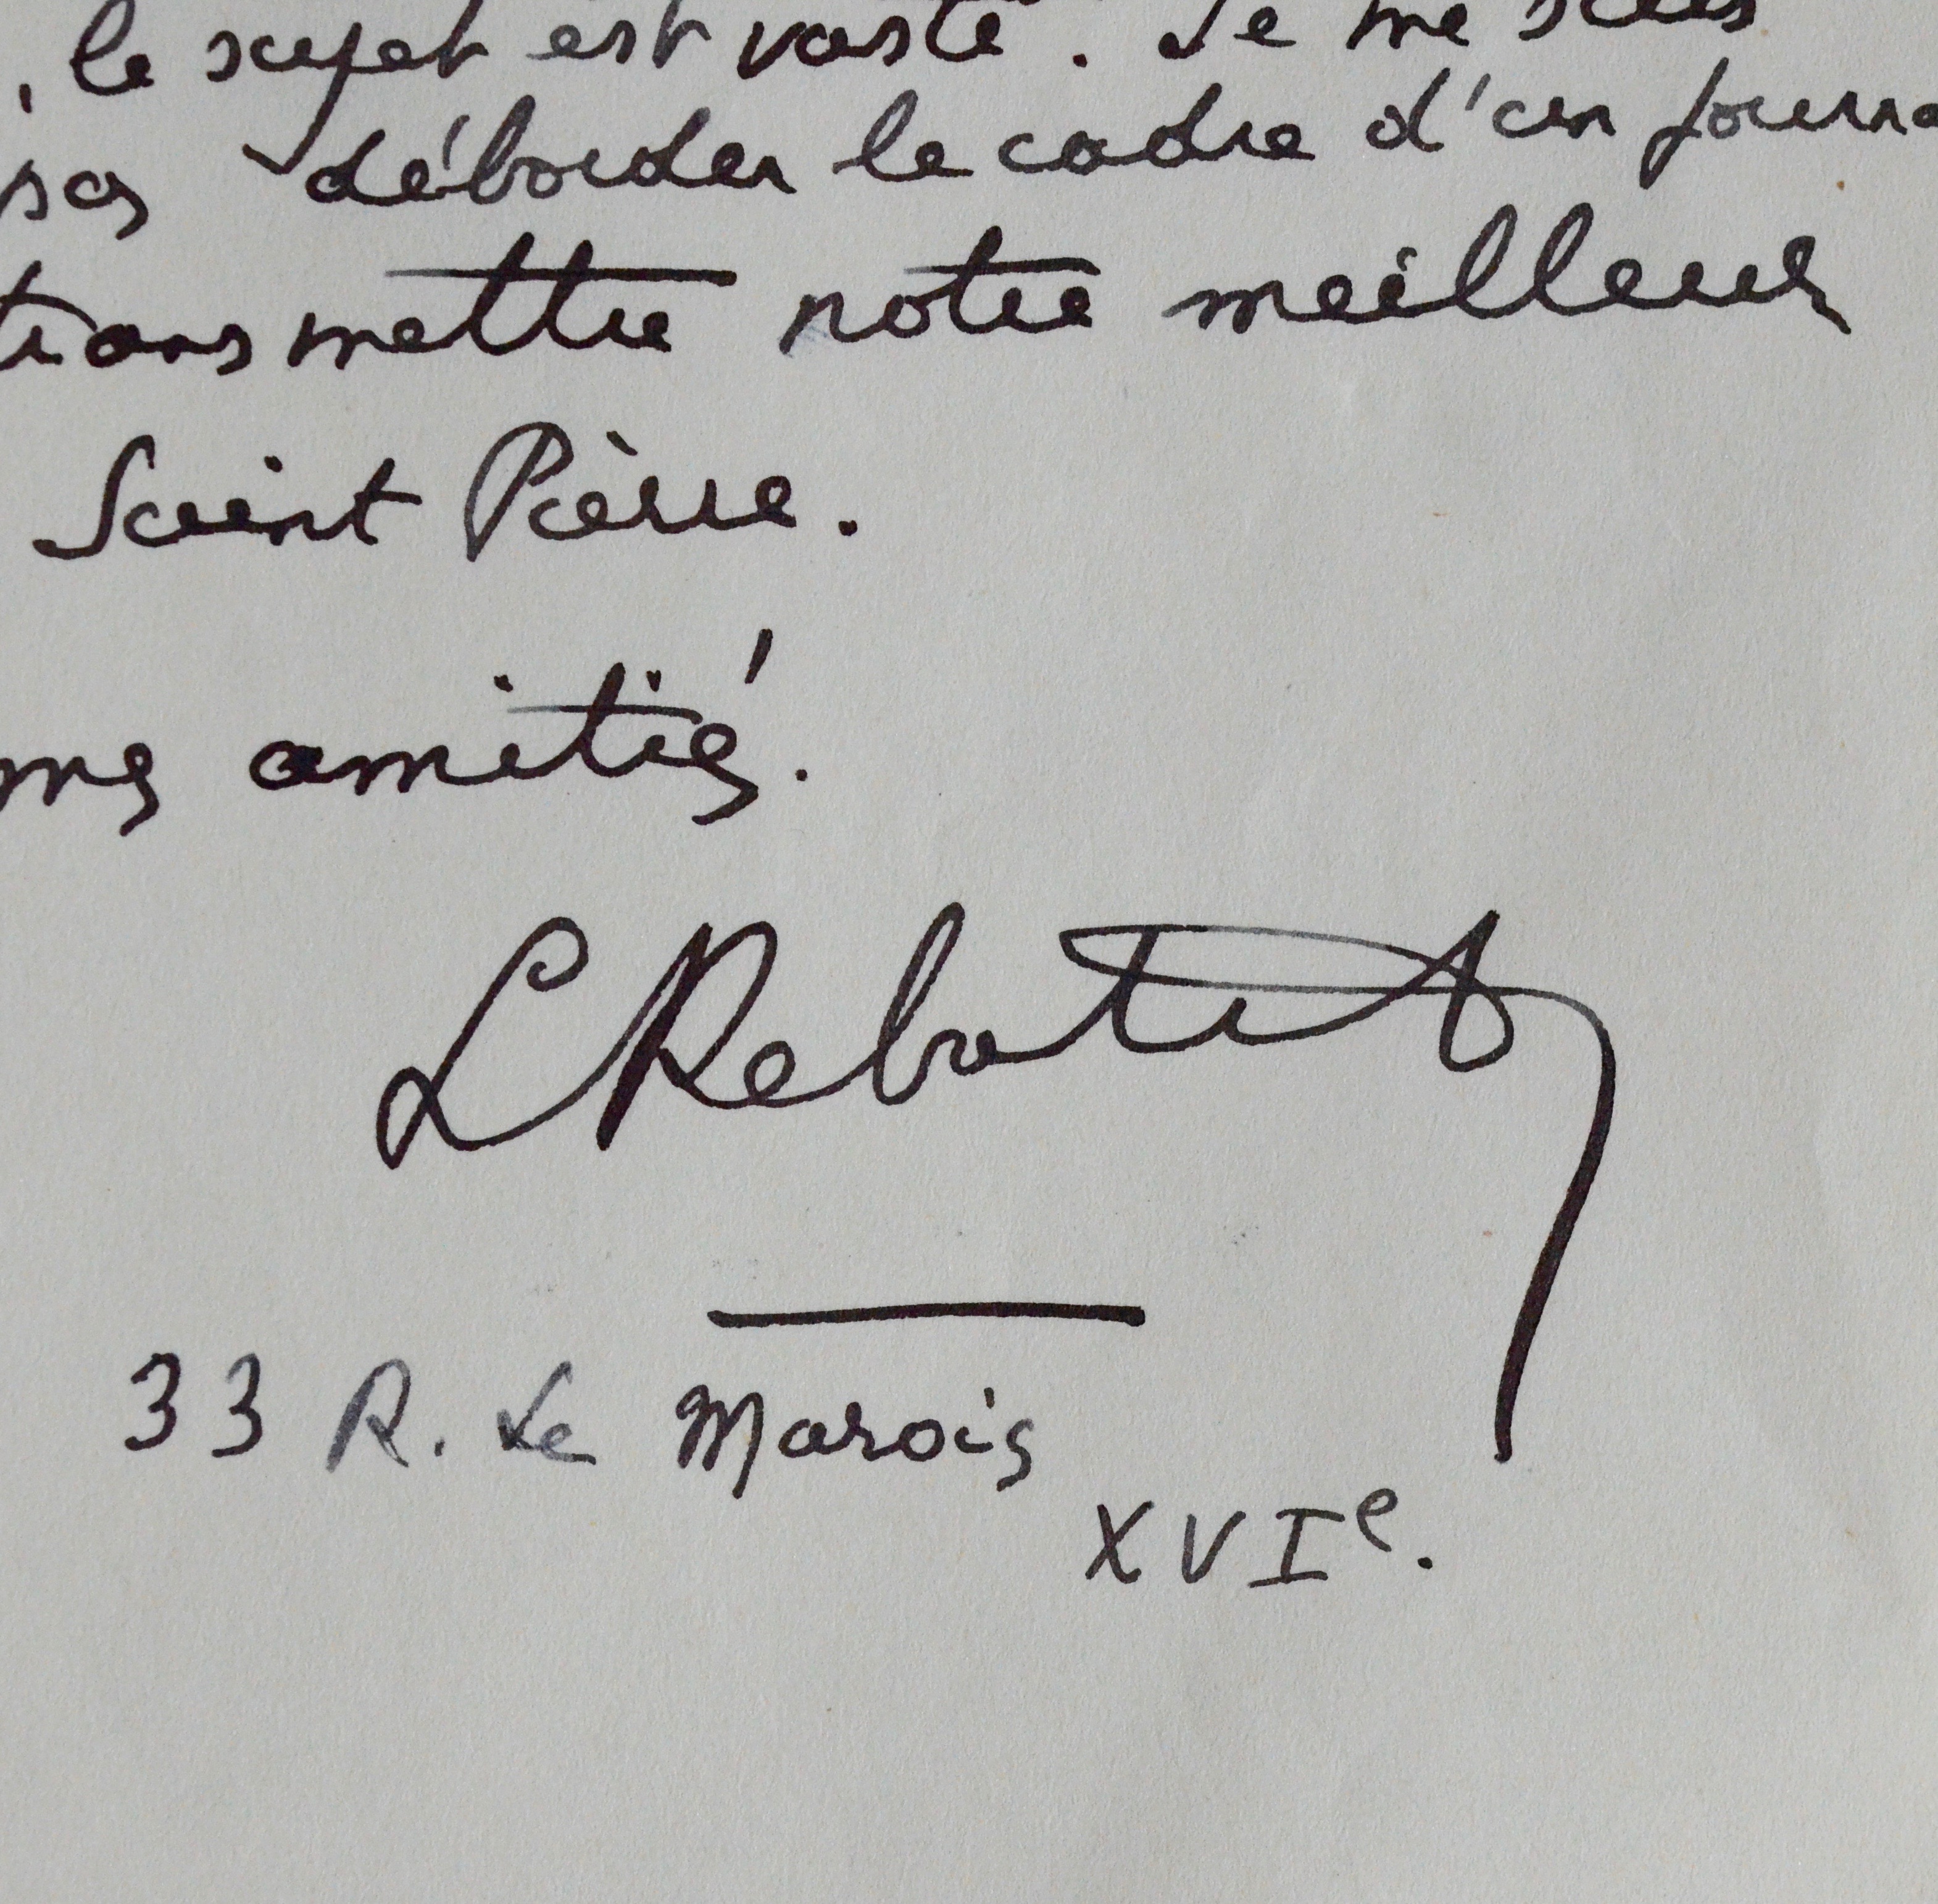 , le sujet est vaste. Je me suis
pas déborder le cadre d'un journa
transmettre notre meilleur
Saint Pierre.
mes amitiés.
LRebatet
33 R. Le Marois
XVIe.